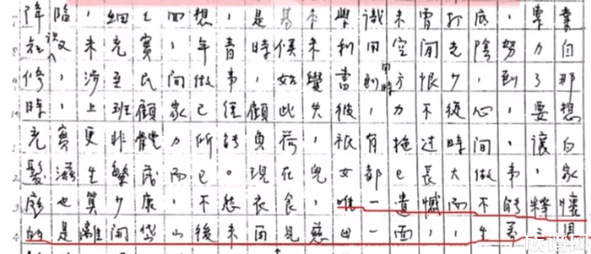 降臨，細細回想，是學識未曾打底，專業
知設未充實，年青時候未利用空閒光陰努力自
修，涉至民間做事，始覺書到用時方恨少，到了那
時，上班顧家已經顧此失彼，力不從心，要想
充實更非體力所能負荷，祇有拖过時間，讓白
髮滋生繁茂而已。現在兒女都已長大做事，家
庭也算少康，不愁衣食，唯一遺憾而不能釋懷
的是離開岱山後未面見慈母一面，生養之恩